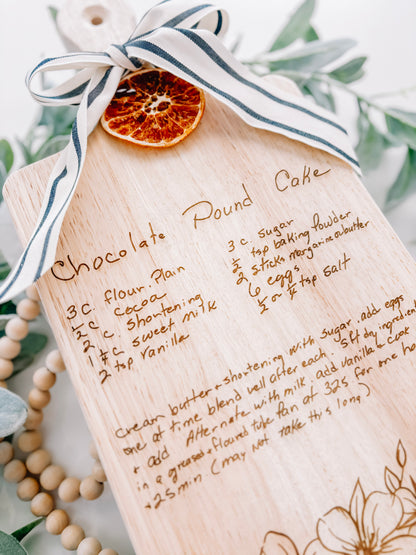 Chocolate Pound Cake
3 c. flour. Plain
½ c cocoa
½ c shortening
1¼ c sweet milk
2 tsp vanilla
3 c. sugar
½ tsp baking powder
2 sticks margarine or butter
6 eggs
½ or ¼ tsp salt
Cream butter + shortening with sugar, add eggs
one at time blend well after each. Sift dry ingredients
+ add Alternate with milk add vanilla +
in a greased + floured tube pan at 325 for one hour
+ 25 min (may not take this long)